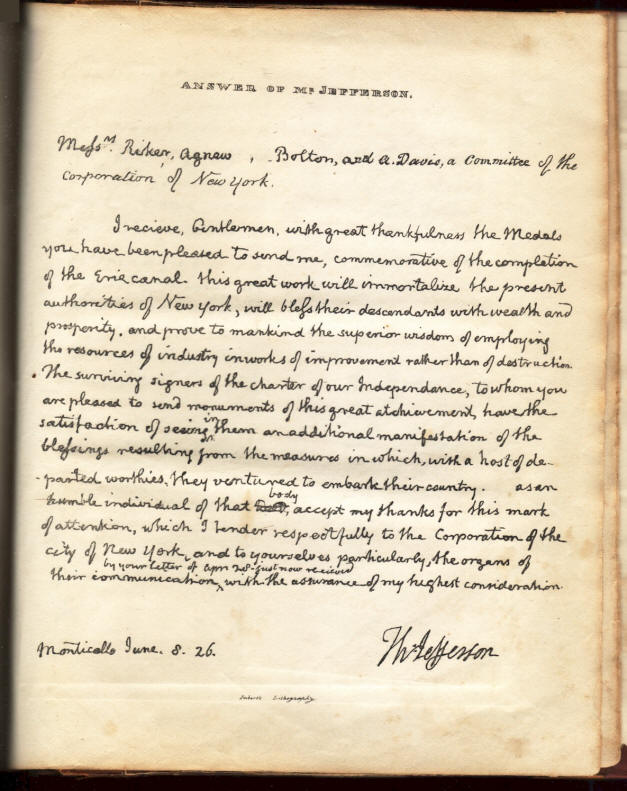 ANSWER OF Mr JEFFERSON.
Messrs Riker, Agnew, Bolton, and A. Davis, a Committee of the
Corporation of New York.
I recieve, Gentlemen, with great thankfulness the Medals
you have been pleased to send me, commemorative of the completion
of the Erie canal. this great work will immortalize the present
authorities of New York, will bless their descendants with wealth and
prosperity, and prove to mankind the superior wisdom of employing
the resources of industry in works of improvement rather than of destruction.
The surviving signers of the charter of our Independance, to whom you
are pleased to send monuments of this great atchievement, have the
satisfaction of seeing in them an additional manifestation of the
blessings resulting from the measures in which, with a host of de-
-parted worthies, they ventured to embark their country. as an
humble individual of that body, accept my thanks for this mark
of attention, which I tender respectfully to the Corporation of the
city of New York, and to yourselves particularly, the organs of
their communication by your letter of Apr 28. just now recieved, with the assurance of my highest consideration.
Monticello June. 8. 26.
Th Jefferson
Imbert's Lithography